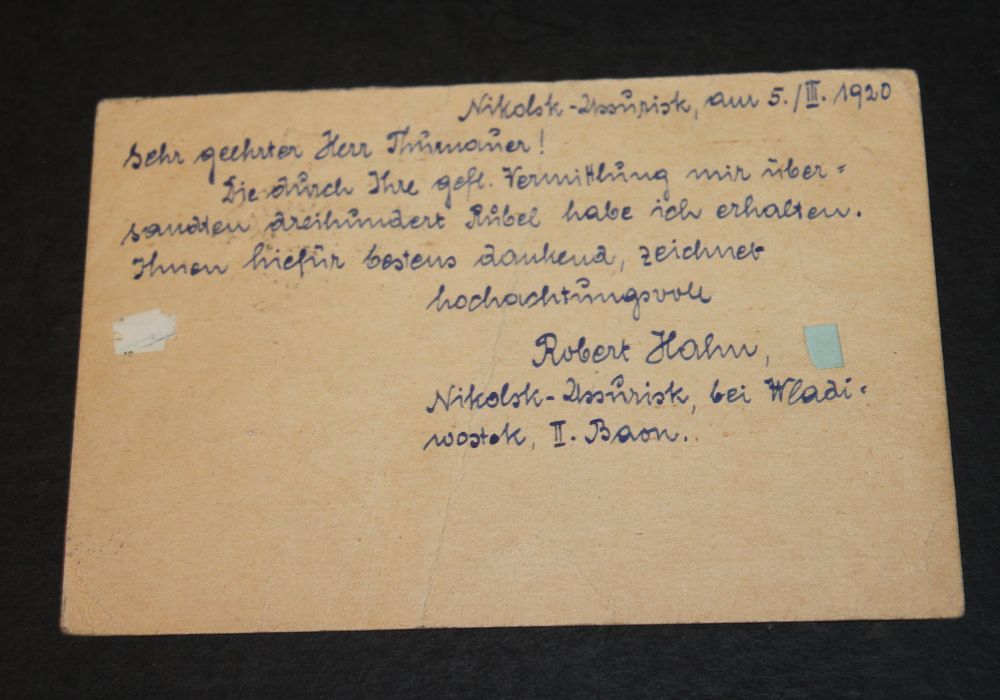 Nikolsk-Ussurisk, am 5./III. 1920
Sehr geehrter Herr Thurnauer!
Die durch Ihre gefl. Vermittlung mir über=
sandten dreihundert Rubel habe ich erhalten.
Ihnen hiefür bestens dankend, zeichnet
hochachtungsvoll
Robert Hahn,
Nikolsk-Ussurisk, bei Wladi=
wostok, II. Baon..